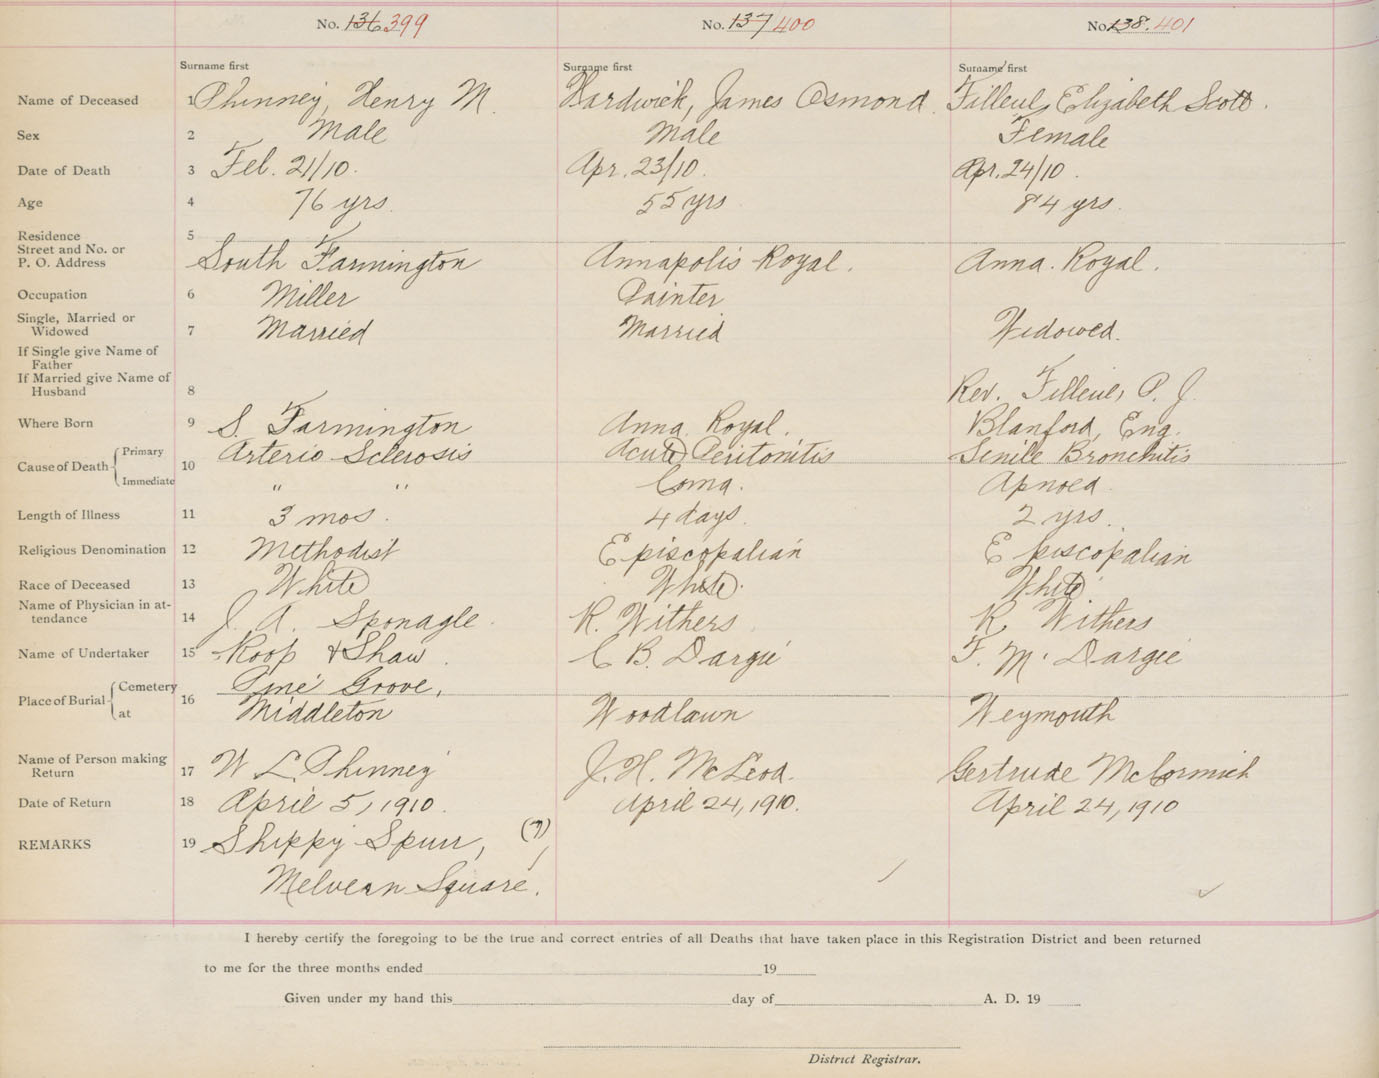 No. 136 399 No. 137 400 No. 138. 401
Surname first Surname first Surname first
Name of Deceased 1 Phinney, Henry M. Hardwick, James Osmond. Filleul, Elizabeth Scott.
Sex 2 Male Male Female
Date of Death 3 Feb. 21/10. Apr. 23/10. Apr. 24/10.
Age 4 76 yrs. 55 yrs 84 yrs.
Residence 5
Street and No. or
P. O. Address South Farmington Annapolis Royal. Anna. Royal.
Occupation 6 Miller Painter
Single, Married or
Widowed 7 Married Married Widowed.
If Single give Name of
Father
If Married give Name of
Husband 8 Rev. Filleul, P. J.
Where Born 9 S. Farmington Anna. Royal. Blanford, Eng.
Primary Arterio Sclerosis Acute Peritonitis Senile Bronchitis
Cause of Death 10
Immediate " " Coma. Apnoea
Length of Illness 11 3 mos. 4 days. 2 yrs.
Religious Denomination 12 Methodist Episcopalian Episcopalian
Race of Deceased 13 White White. White.
Name of Physician in at-
tendance 14 J. A. Sponagle. R. Withers R. Withers
Name of Undertaker 15 Roop & Shaw. C B. Dargie F. M. Dargie
Cemetery Pine Grove,
Place of Burial 16
at Middleton Woodlawn Weymouth
Name of Person making
Return 17 W L. Phinney J. H. McLeod. Gertrude McCormick
Date of Return 18 April 5, 1910. April 24, 1910. April 24, 1910
REMARKS 19 Shippy Spurr, (?)
Melvern Square.
I hereby certify the foregoing to be the true and correct entries of all Deaths that have taken place in this Registration District and been returned
to me for the three months ended 19
Given under my hand this day of A. D. 19
District Registrar.